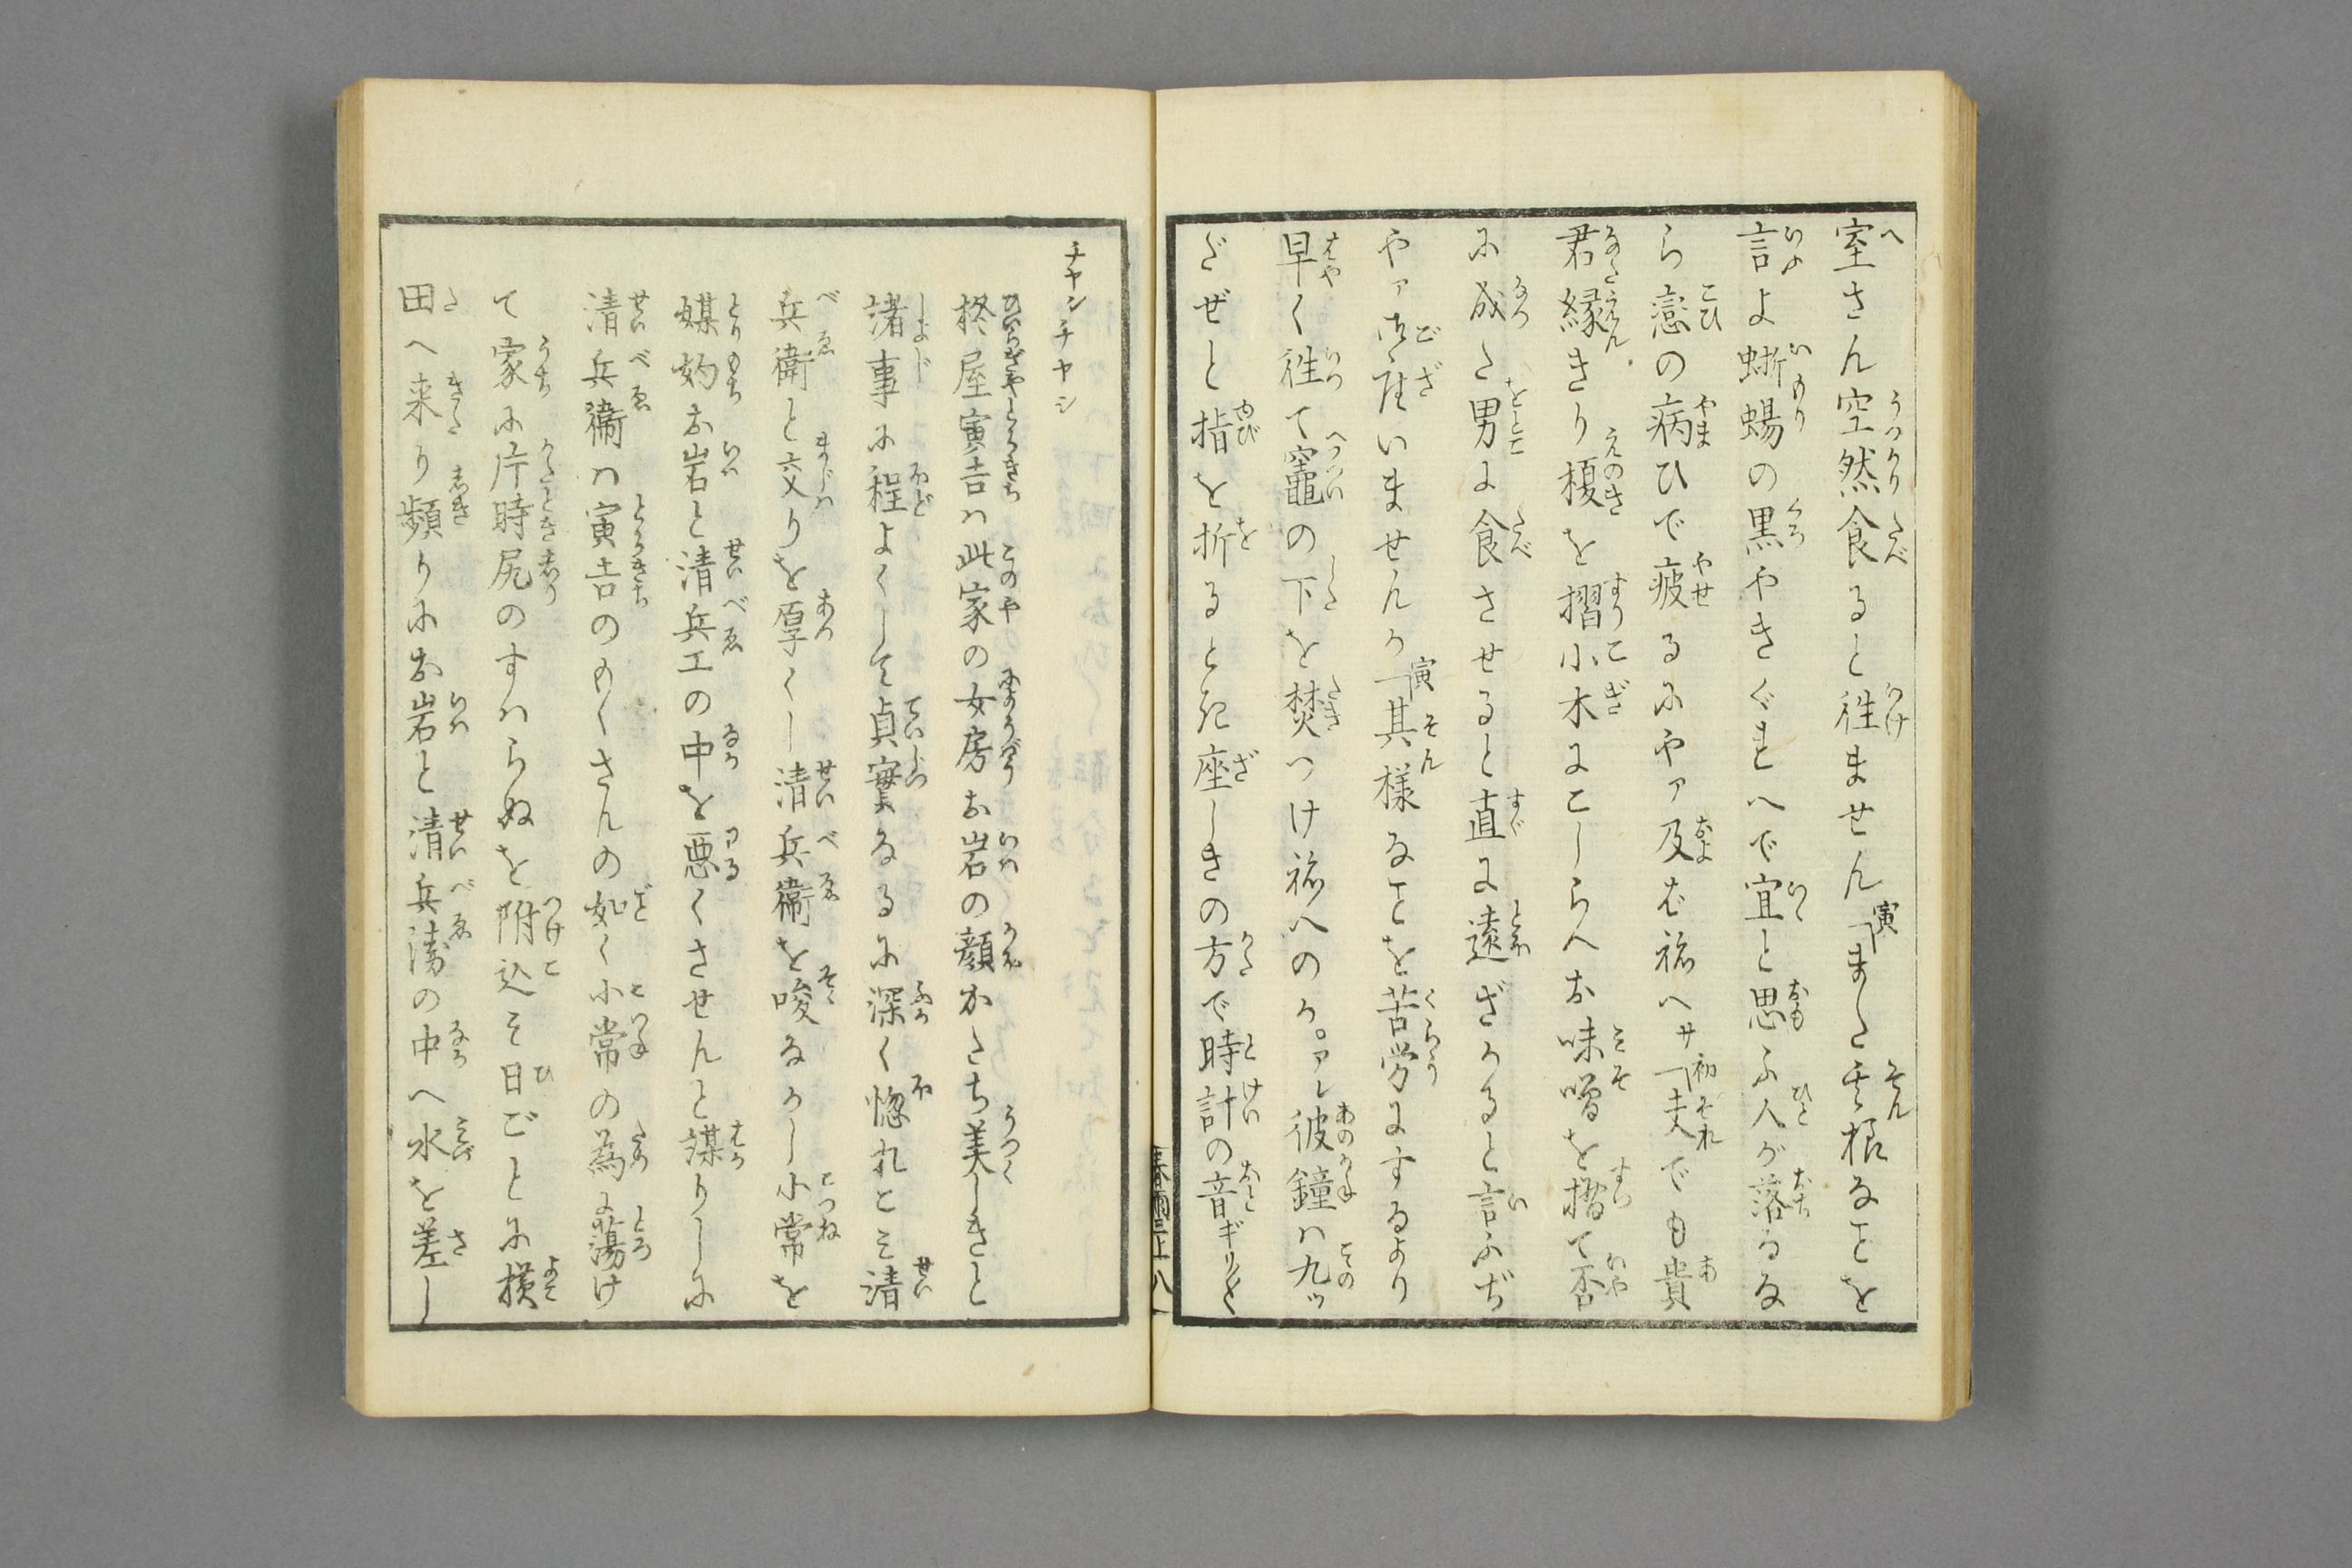 室さん空然食ると往ません「寅またそん根なことを
言よ蜥蜴の黒やきぐすへで宜と思ふ人が落るな
ら恋の病ひで疲るにやァ及ばねへサ「初夫でも貴
君縁きり榎を摺小木にこしらへお味噌を摺て否
に成た男に食させると直に遠ざかると言ふぢ
やァ御座いませんか「寅其様なことを苦労にするより
早く往て竈の下を焚つけねへのか。アレ彼鐘ハ九ッ
だぜと指を折ると死座しきの方で時計の音ギリ〳〵
チヤンチヤン
柊屋寅吉ハ此家の女房お岩の顔かたち美しきと
諸事に程よくして貞実なるに深く惚れこみ清
兵衛と交りを厚くし清兵衛を唆なかし小常を
媒妁お岩と清兵エの中を悪くさせんと謀りしに
清兵衛ハ寅吉のもくさんの如く小常の為に蕩け
て家に片時尻のすハらぬを附込そ日ごとに横
田へ来り頻りにお岩と清兵衛の中へ水を差し